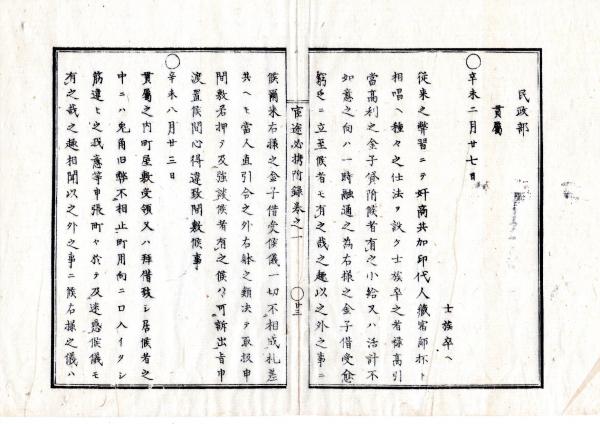 民政部
貫屬
士族卒ヘ
○辛未二月廿七日
從来之弊習ニテ奸商共加印代人藏宿師杯ト
相唱ヘ種々之仕法ヲ設ケ士族卒之者祿高引
當高利之金子貸附候者有之小給又ハ活計不
如意之向ハ一時融通之為右様之金子借受愈
窮迫ニ立至候者モ有之哉之趣以之外之事ニ
宦途必携附録巻之一
○廿三
候爾来右様之金子借受候儀一切不相成札差
共ヘモ當人直引合之外右躰之類決テ取扱申
間敷若押テ及強談候者有之候ハヽ可訴出旨申
渡置候間心得違致間敷候事
○辛未八月廿三日
貫屬之内町屋敷受領又ハ拜借致シ居候者之
中ニハ兎角旧弊不相止町用向ニ口入イタシ
筋違ヒ之我意等申張町々ニ於テ及迷惑候儀モ
有之哉之趣相聞以之外之事ニ候右様之儀ハ